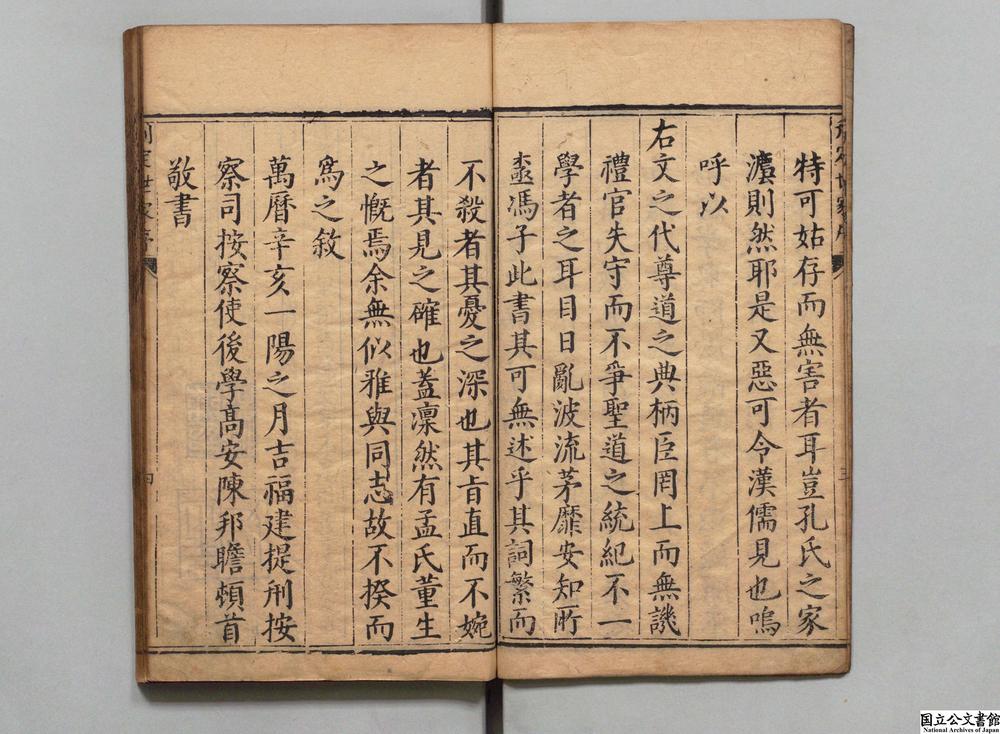 特可姑存而無害者耳豈孔氏之家
灋則然耶是又惡可令漢儒見也嗚
呼以
右文之代尊道之典柄臣罔上而無譏
禮官失守而不爭聖道之統紀不一
學者之耳目日亂波流茅靡安知所
𠫵馮子此書其可無述乎其詞繁而
不殺者其憂之深也其旨直而不婉
者其見之確也蓋凜然有孟氏董生
之慨焉余無似雅與同志故不揆而
爲之敘
萬曆辛亥一陽之月吉福建提刑按
察司按察使後學高安陳邦瞻頓首
敬書
刻定世家序
四
三
国立公文書館
National Archives of Japan